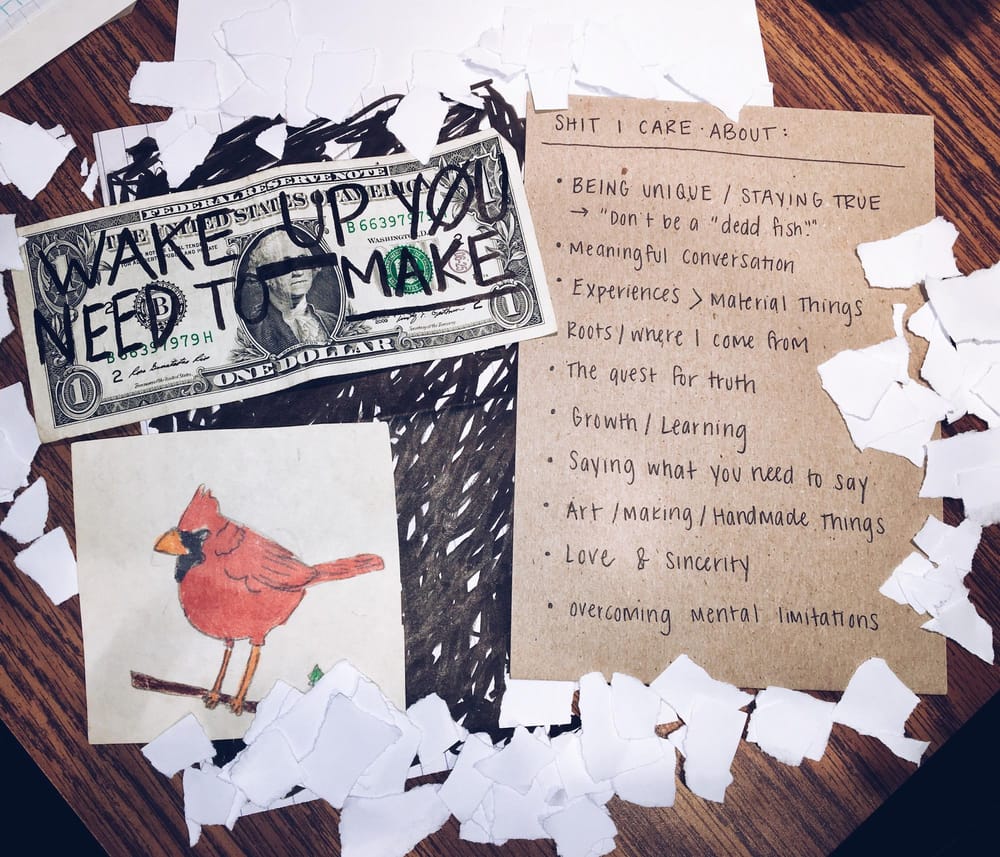 FEDERAL RESERVE NOTE
THE UNITED STATES OF AMERICA
WAKE UP YØU
NEED TO MAKE
WASHINGTON, D.C.
B
2
1
1
ONE DOLLAR
SHIT I CARE ABOUT:
• BEING UNIQUE / STAYING TRUE
→ "Don't be a "dead fish""
• Meaningful conversation
• Experiences > Material Things
Roots / where I come from
• The quest for truth
• Growth / Learning
• Saying what you need to say
• Art / Making / Handmade Things
• Love & Sincerity
• overcoming mental limitations